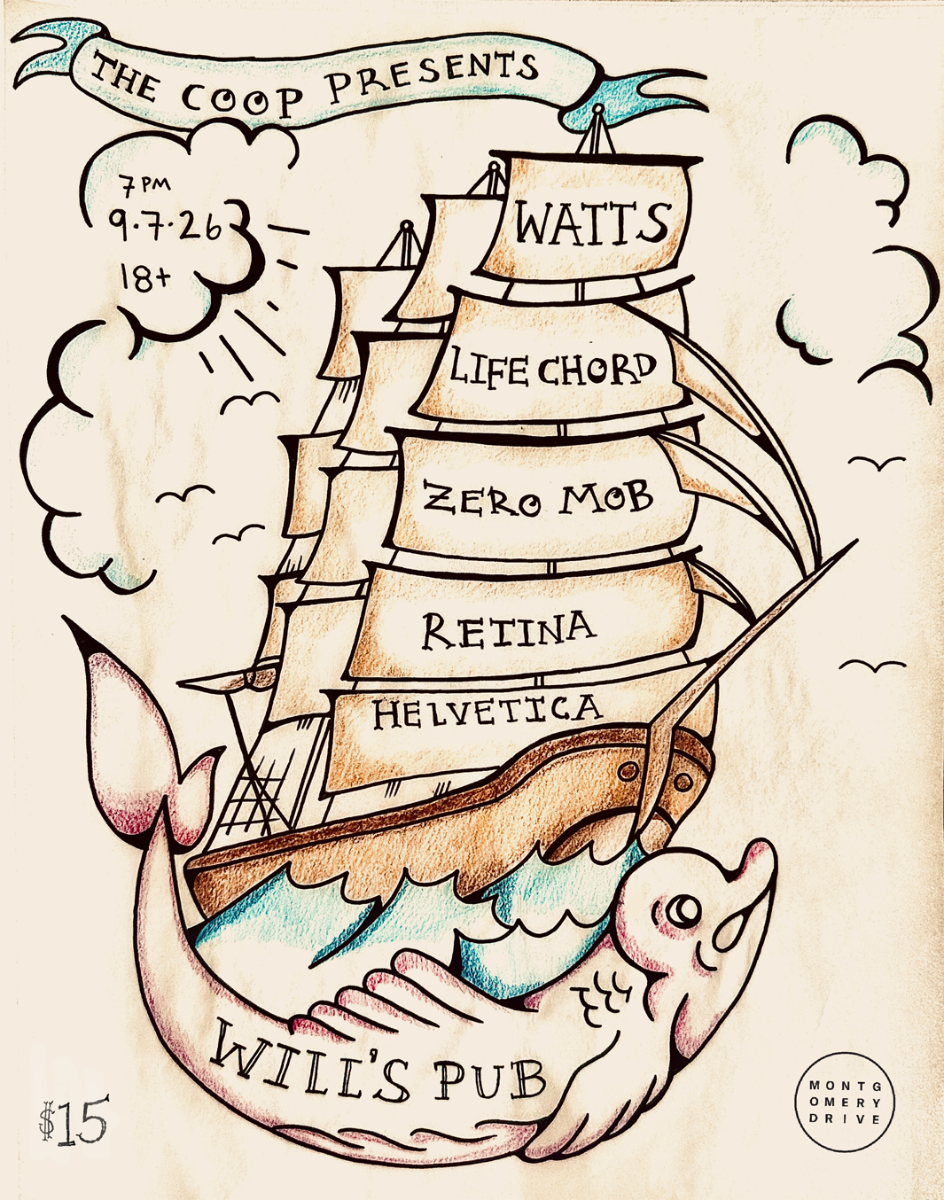 THE COOP PRESENTS
7PM
9.7.26
18+
WATTS
LIFE CHORD
ZERO MOB
RETINA
HELVETICA
WILL'S PUB
$15
MONTG
OMERY
DRIVE